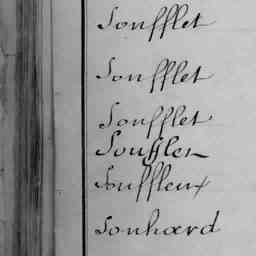 Soufflet
Soufflet
Soufflet
Souffler
Souffleux
Souhard